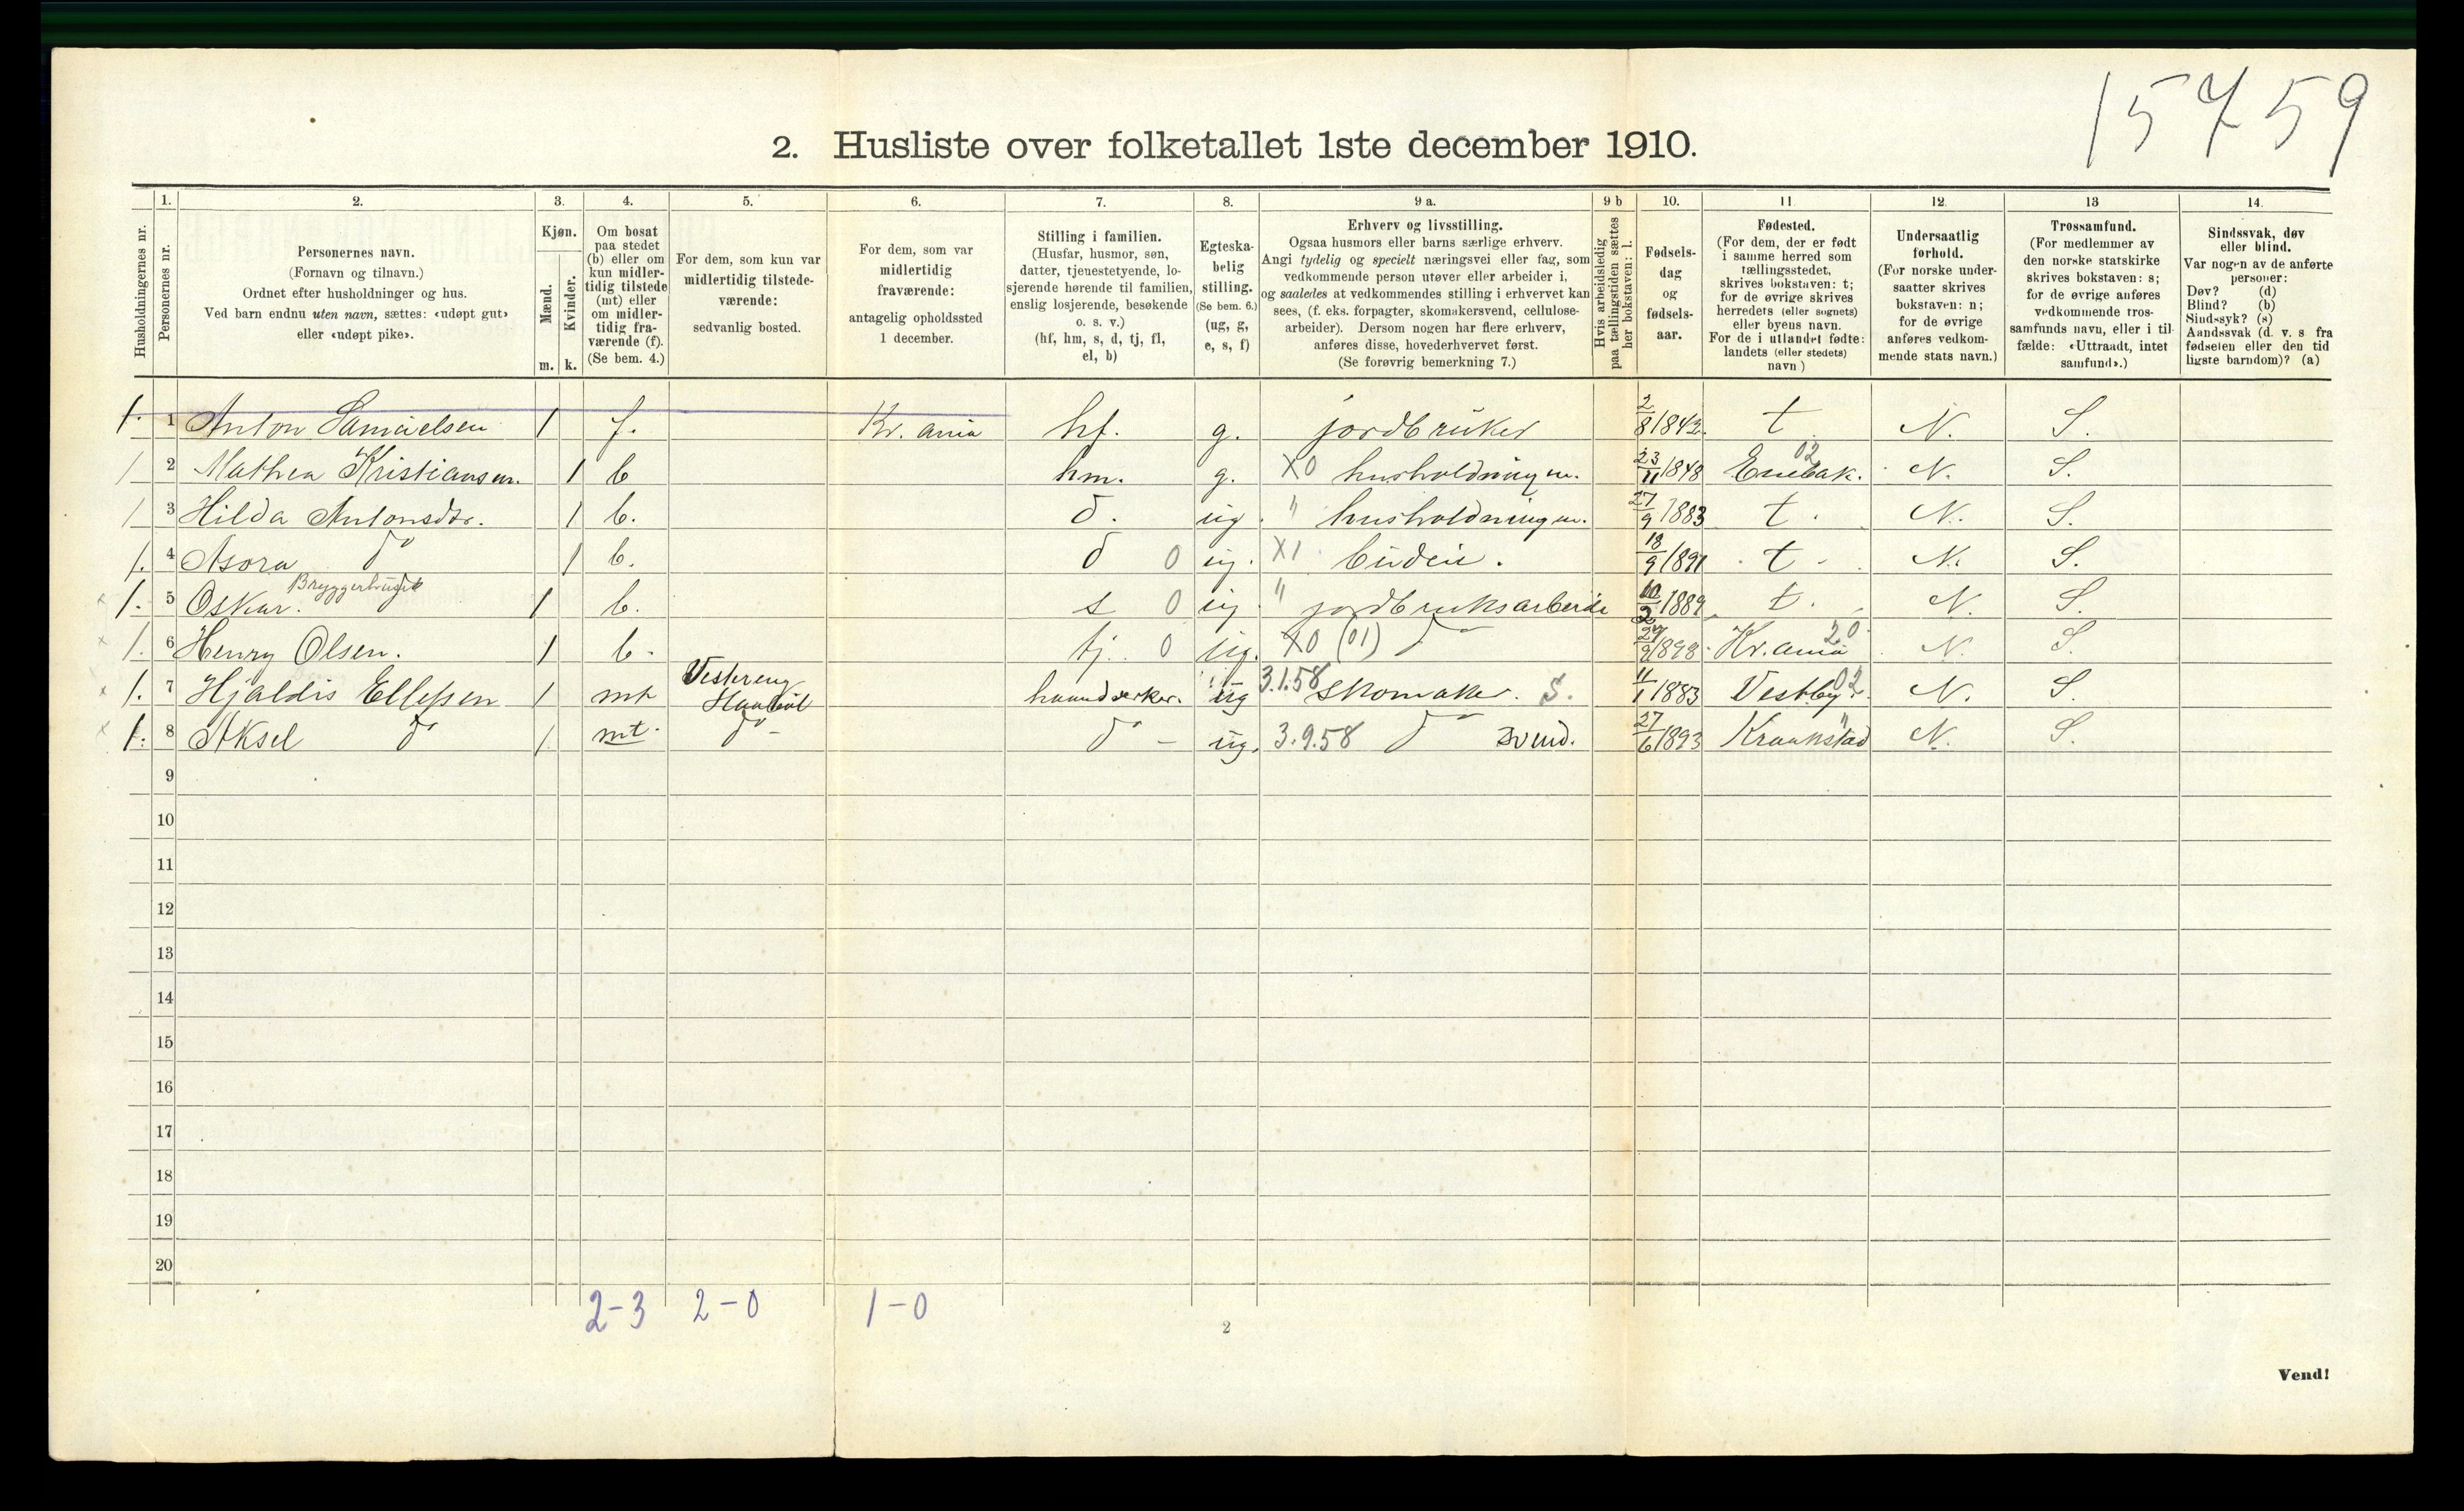 15759
2. Husliste over folketallet 1ste december 1910.
Husholdningernes nr.
1. 2. 3. 4. 5. 6. 7. 8. 9 a. 9 b 10. 11 12. 13 14.
Personernes nr.
Personernes navn.
(Fornavn og tilnavn.)
Ordnet efter husholdninger og hus.
Ved barn endnu uten navn, sættes: «udøpt gut»
eller «udøpt pike».
Kjøn.
Mænd.
Kvinder.
m. k.
Om bosat
paa stedet
(b) eller om
kun midler-
tidig tilstede
(mt) eller
om midler-
tidig fra-
værende (f).
(Se bem. 4.)
For dem, som kun var
midlertidig tilstede-
værende:
sedvanlig bosted.
For dem, som var
midlertidig
fraværende:
antagelig opholdssted
1 december.
Stilling i familien.
(Husfar, husmor, søn,
datter, tjenestetyende, lo-
sjerende hørende til familien,
enslig losjerende, besøkende
o. s. v.)
(hf, hm, s, d, tj, fl,
el, b)
Egteska-
belig
stilling.
(Se bem. 6.)
(ug, g,
e, s, f)
Erhverv og livsstilling.
Ogsaa husmors eller barns særlige erhverv.
Angi tydelig og specielt næringsvei eller fag, som
vedkommende person utøver eller arbeider i,
og saaledes at vedkommendes stilling i erhvervet kan
sees, (f. eks. forpagter, skomakersvend, cellulose-
arbeider). Dersom nogen har flere erhverv,
anføres disse, hovederhvervet først.
(Se forøvrig bemerkning 7.)
Hvis arbeidsledig
paa tællingstiden sættes
her bokstaven: l.
Fødsels-
dag
og
fødsels-
aar.
Fødested.
(For dem, der er født
i samme herred som
tællingsstedet,
skrives bokstaven: t;
for de øvrige skrives
herredets (eller sognets)
eller byens navn.
For de i utlandet fødte:
landets (eller stedets)
navn )
Undersaatlig
forhold.
(For norske under-
saatter skrives
bokstaven: n;
for de øvrige
anføres vedkom-
mende stats navn.)
Trossamfund.
(For medlemmer av
den norske statskirke
skrives bokstaven: s;
for de øvrige anføres
vedkommende tros-
samfunds navn, eller i til-
fælde: «Uttraadt, intet
samfund».)
Sindssvak, døv
eller blind.
Var nogen av de anførte
personer:
Døv? (d)
Blind? (b)
Sindssyk? (s)
Aandssvak (d. v. s fra
fødselen eller den tid
ligste barndom)? (a)
1. 1 Anton Samuelsen 1 f. Kr. ania hf. g. jordbruker 2/8 1842. t N. S.
1 2 Mathea Kristiansen. 1 b hm. g. X0 husholdning m. 23/11 1848 Enebak. 02 N. S.
1 3 Hilda Antonsdtr. 1 b. d. ug. " husholdning m. 27/9 1883 t. N. S.
1. 4 Asora do 1 b. d 0 ug. X1 budeie. 18/9 1891 t N. S.
Bryggerhuset
1. 5 Oskar. do 1 b. s 0 ug " jordbruksarbeide 1889 t. N. S.
1. 6 Henry Olsen. 1 b. tj. 0 ug. X0 (01) do 1898 Kr. ania 20 N. S.
Vestereng
1. 7 Hjaldis Ellefsen 1 mt Haabøl haandverker. ug 3.1.58 skomaker. S. 11/1 1883 Vestby. 02 N. S.
1. 8 Aksel do 1 mt. do - do - ug. 3.9.58 do svend. 27/6 1893 Kraakstad " N. S.
9
10
11
12
13
14
15
16
17
18
19
20
2-3 2-0 1-0
2
Vend!